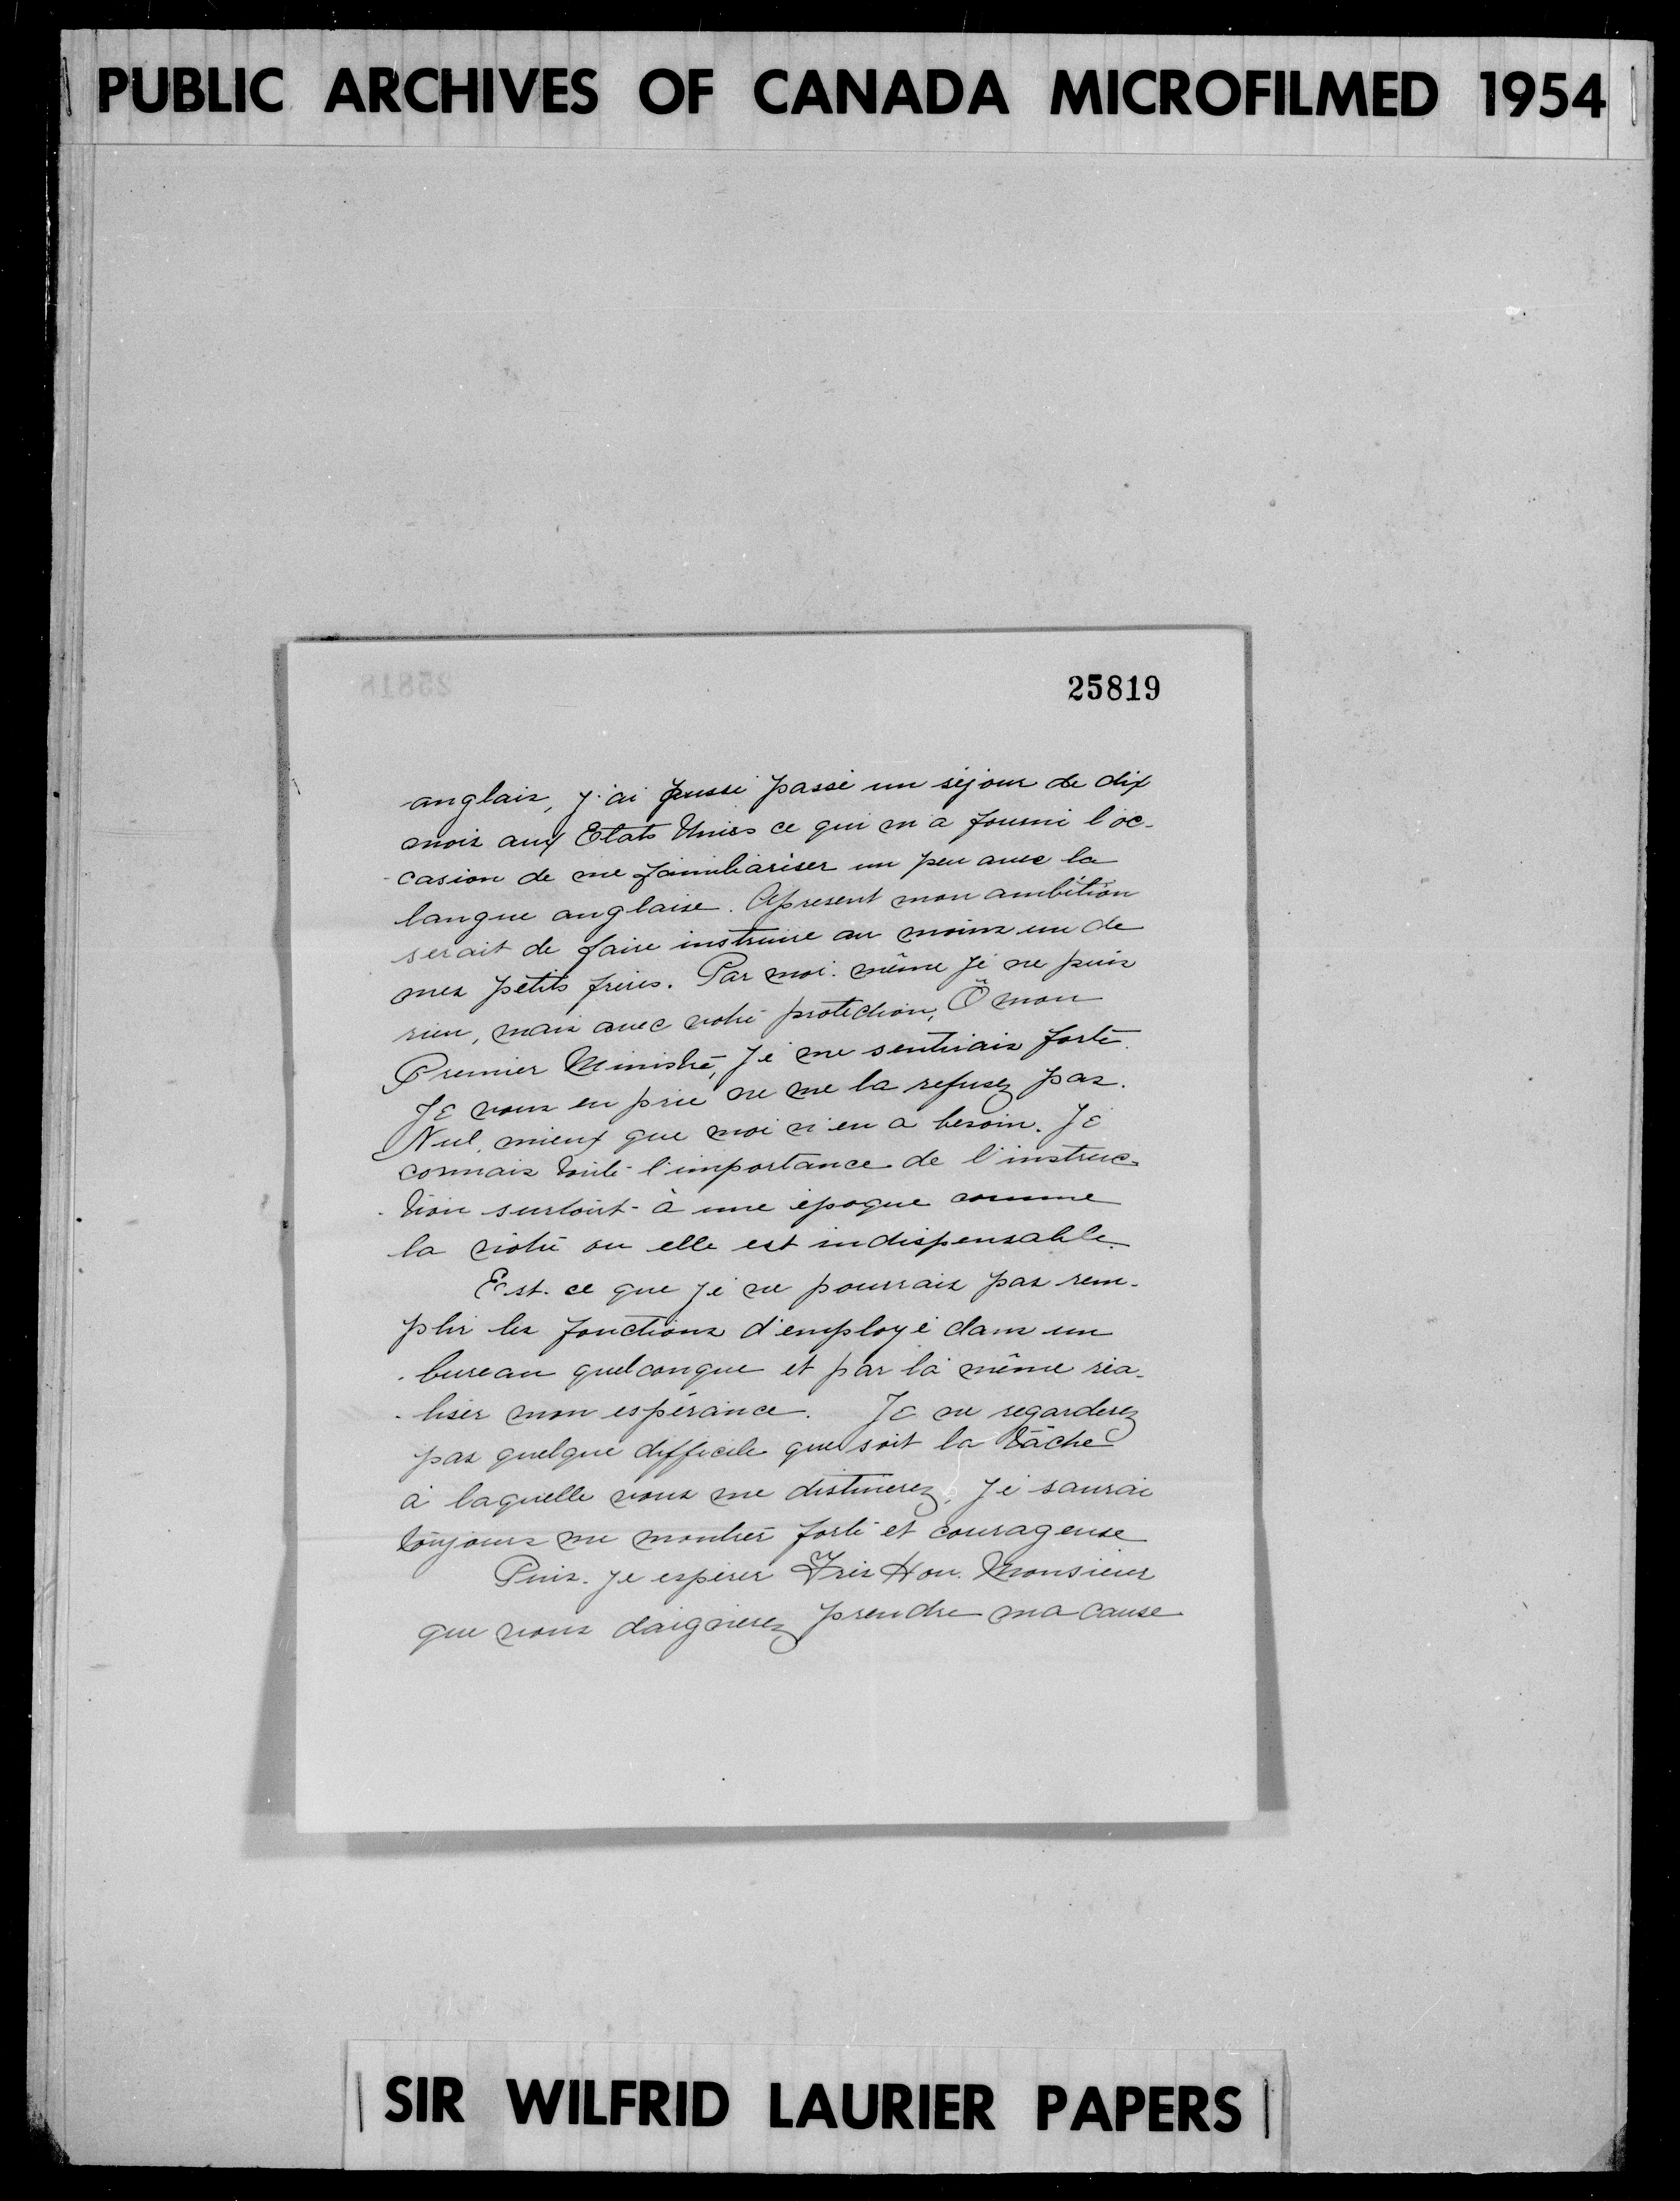 PUBLIC ARCHIVES OF CANADA MICROFILMED 1954
25818
25819
anglais, j'ai aussi passé un séjour de dix
mois aux Etats Unies ce qui m'a fourni l'oc-
casion de me familiariser un peu avec la
langue anglaise. Apresent mon ambition
serait de faire instruire au moins un de
mes petits frères. Par moi-même je ne puis
rien, mais avec votre protection, Ô mon
Premier Ministre, je me sentirais forte.
Je vous en prie ne me la refusez pas.
Nul mieux que moi n'en a besoin. Je
connais toute l'importance de l'instruc-
tion surtout à une époque comme
la nôtre ou elle est indispensable.
Est-ce que je ne pourrais pas rem-
plir les fonctions d'employé dans un
bureau quelconque et par là même réa-
liser mon espérance. Je ne regarderez
pas quelque difficile que soit la tâche
à laquelle vous me destinerez, je saurai
toujours me montrer forte et courageuse
Puis-je espérer Très Hon. Monsieur
que vous daignerez prendre ma cause
SIR WILFRID LAURIER PAPERS